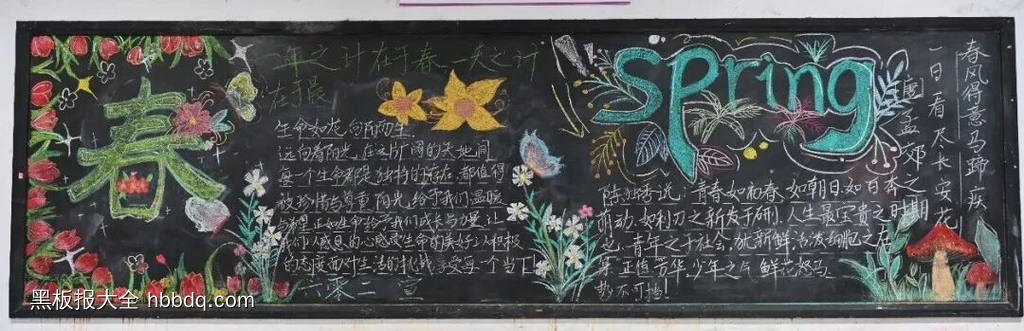 春
一年之计在于春 一天之计
在于晨
生命如花 向阳而生
远向着阳光,在这片广阔的天地间
每一个生命都是独特的存在,都值得
被珍惜与尊重 阳光,给予我们温暖
正如生命给予我们成长与力量 让
我们以感恩的心感受生命的美好,以积极
的态度面对生活的挑战 享受每一个当下
六零二 宣
Spring
陈独秀说:青春如初春,如朝日,如百卉之
萌动,如利刃之新发于硎,人生最宝贵之时期
也。青年之于社会,犹新鲜活泼细胞之在
正值芳华,少年之 鲜花怒马
势不可挡!
春风得意马蹄疾
一日看尽长安花
唐 孟郊
黑板报大全 hbbdq.com